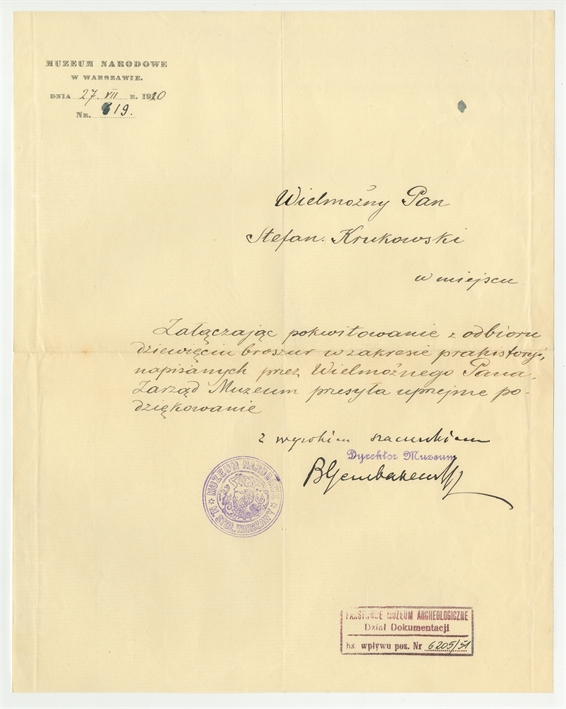 MUZEUM NARODOWE
W WARSZAWIE.
DNIA 27. VII R. 1920
NR. 619.
Wielmożny Pan
Stefan Krukowski
w miejscu
Załączając pokwitowanie z odbioru
dziewięciu broszur w zakresie prahistoryi,
napisanych przez Wielmożnego Pana
Zarząd Muzeum przesyła uprzejme po-
dziękowanie
z wysokim szacunkiem
Dyrektor Muzeum
BGembarzewski
MUZEUM NARODOWE
W STOŁ. WARSZAWY
PAŃSTWOWE MUZEUM ARCHEOLOGICZNE
Dział Dokumentacji
ks wpływu poz. Nr 6205/51